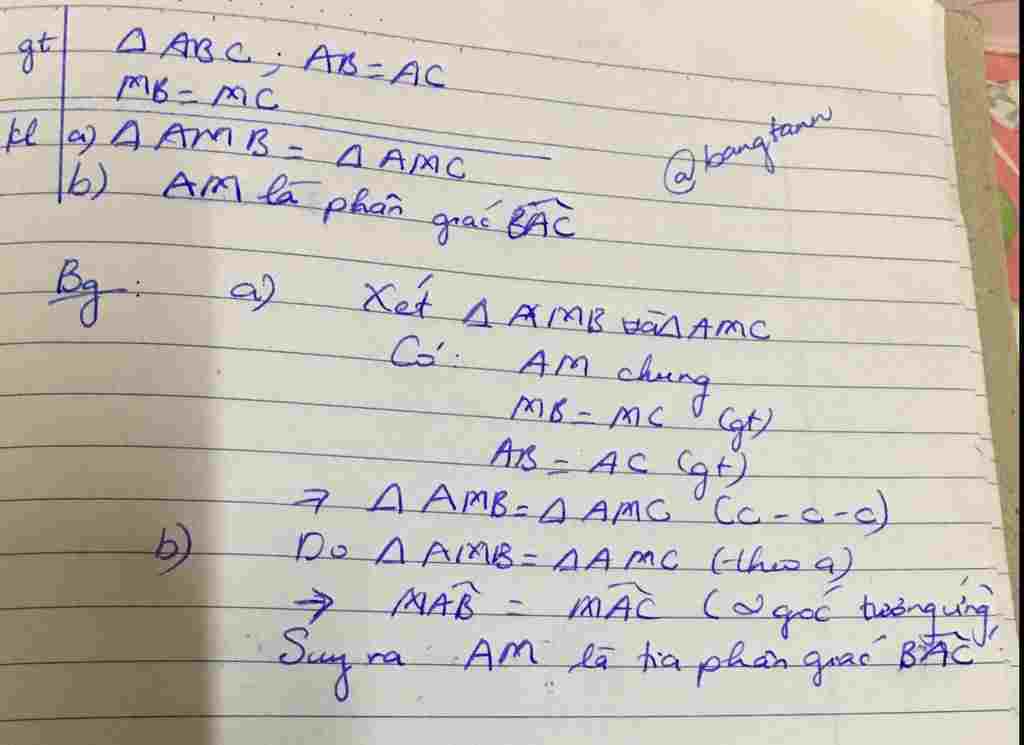 gt ΔABC; AB = AC
MB = MC
kl a) ΔAMB = ΔAMC
b) AM là phân giác BAC
@bangtann
Bg: a) Xét ΔAMB và ΔAMC
Có: AM chung
MB = MC (gt)
AB = AC (gt)
→ ΔAMB = ΔAMC (c-c-c)
b) Do ΔAMB = ΔAMC (theo a)
→ MAB = MAC (2 góc tương ứng)
Suy ra AM là tia phân giác BAC